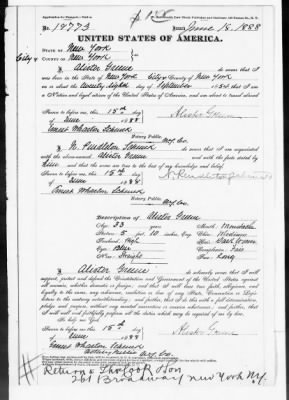 No. 12773 Issued June 18, 1888
UNITED STATES OF AMERICA.
STATE OF New York
City & COUNTY OF New York
I, Alister Greene do swear that I
was born in the State of New York City & County of New York
on the twenty eighth day of September 1854 that I am
a Native and loyal citizen of the United States of America, and am about to travel abroad
Sworn to before me, this 15th day
of June 1888
Alister Greene
Ernest Wharton
Notary Public
N.Y. Co.
I, N. Pendleton do swear that I am acquainted
with the above-named Alister Greene and with the facts stated by
him and that the same are true to the best of my knowledge and belief.
Sworn to before me, this 15th day
of June 1888
Ernest Wharton
Notary Public
N.Y. Co.
Description of Alister Greene
Age: 33 years
Stature: 5 feet 10 inches, Eng.
Forehead: High
Eyes: Blue
Nose: Straight
Mouth: Moustache
Chin: Medium
Hair: Dark brown
Complexion: Fair
Face: Long
I, Alister Greene do solemnly swear that I will
support, protect and defend the Constitution and Government of the United States against
all enemies, whether domestic or foreign; and that I will bear true faith, allegiance, and
loyalty to the same, any ordinance, resolution or law of any State, Convention or Legis-
lature to the contrary notwithstanding; and further, that I do this with a full determination,
pledge and purpose, without any mental reservation or evasion whatsoever; and further, that
I will well and faithfully perform all the duties which may be required of me by law:
So help me God.
Sworn to before me, this 15th day
of June 1888
Alister Greene
Ernest Wharton
Notary Public N.Y. Co.
Return to Thos Cook & Son
261 Broadway New York N.Y.